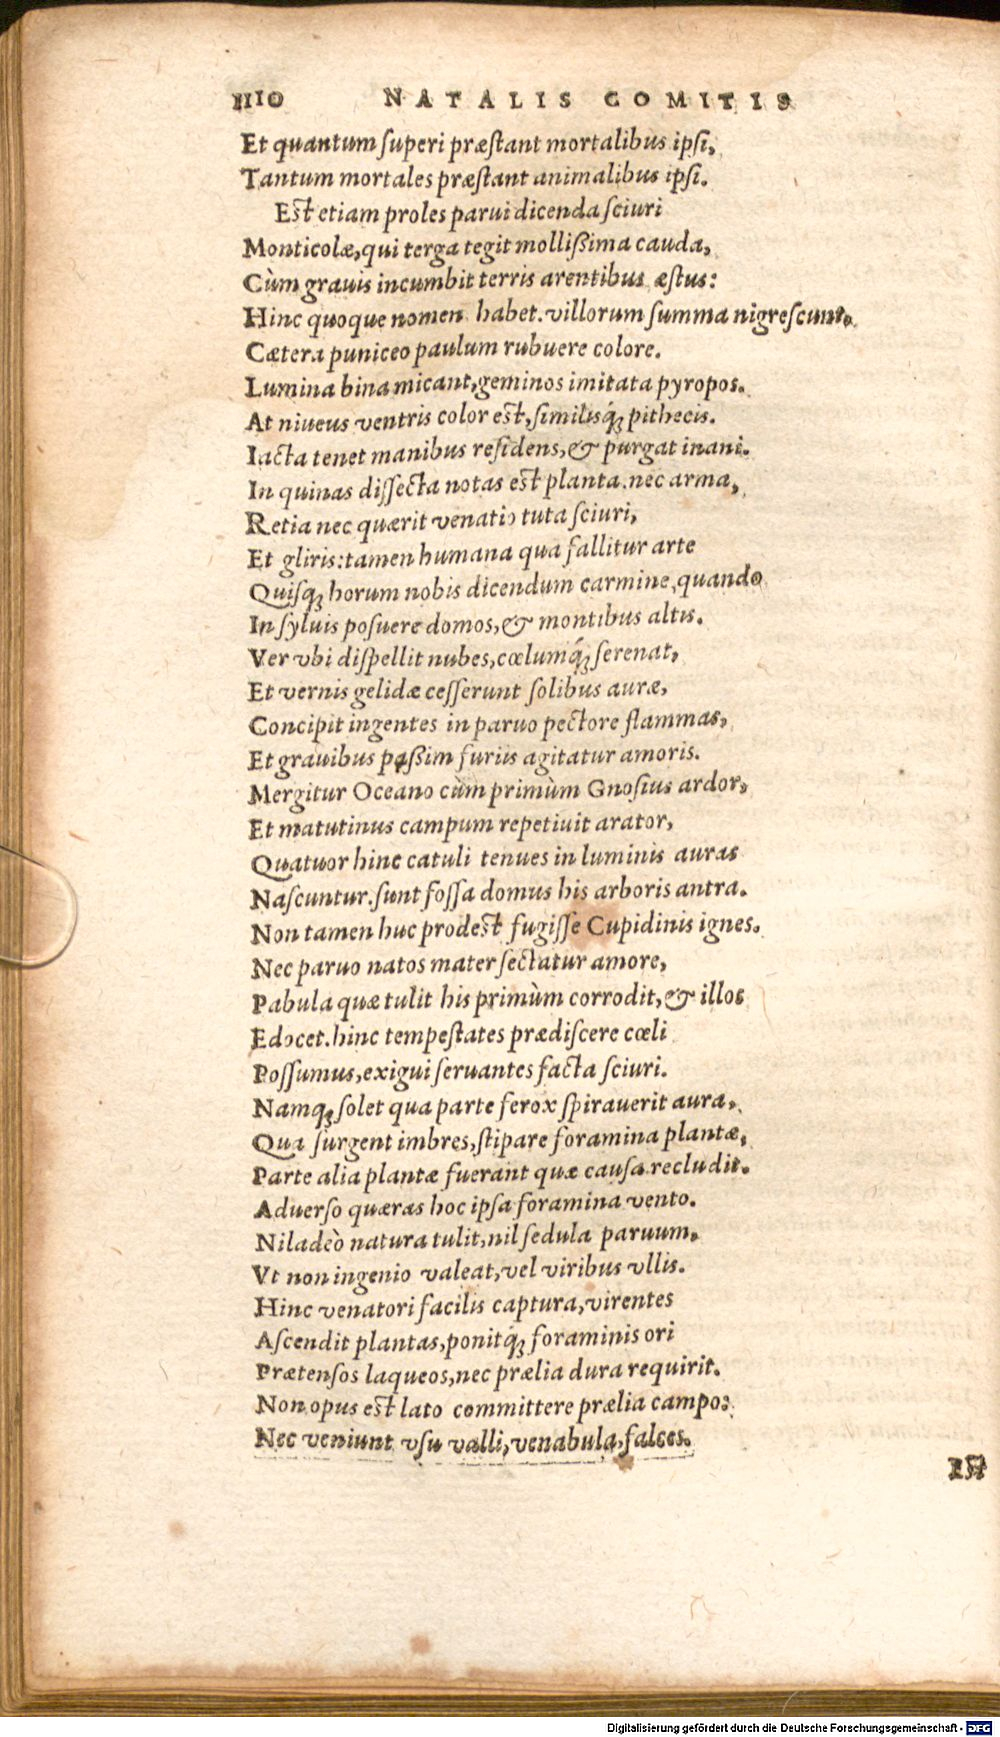 1110 NATALIS COMITIS
Et quantum ſuperi præſtant mortalibus ipſi,
Tantum mortales præſtant animalibus ipſi.
Eſt etiam proles parui dicenda ſciuri
Monticolæ,qui terga tegit mollißima cauda,
Cùm grauis incumbit terris arentibus æſtus:
Hinc quoque nomen habet.villorum ſumma nigreſcunt.
Cætera puniceo paulum rubuere colore.
Lumina bina micant,geminos imitata pyropos.
At niueus ventris color eſt,ſimilisq́ꝫ pithecis.
Iacta tenet manibus reſidens,& purgat inani.
In quinas diſſecta notas eſt planta.nec arma,
Retia nec quærit venatio tuta ſciuri,
Et gliris:tamen humana qua fallitur arte
Quiſqꝫ horum nobis dicendum carmine,quando
In ſyluis poſuere domos,& montibus altis.
Ver vbi diſpellit nubes,cœlumq́ꝫ ſerenat,
Et vernis gelidæ ceſſerunt ſolibus auræ,
Concipit ingentes in paruo pectore flammas,
Et grauibus paßim furiis agitatur amoris.
Mergitur Oceano cùm primùm Gnoſius ardor,
Et matutinus campum repetiuit arator,
Quatuor hinc catuli tenues in luminis auras
Naſcuntur.ſunt foſſa domus his arboris antra.
Non tamen huc prodeſt fugiſſe Cupidinis ignes.
Nec paruo natos mater ſectatur amore,
Pabula quæ tulit his primùm corrodit,& illos
Edocet.hinc tempeſtates prædiſcere cœli
Poſſumus,exigui ſeruantes facta ſciuri.
Namqꝫ ſolet qua parte ferox ſpirauerit aura,
Qua ſurgent imbres,ſtipare foramina plantæ,
Parte alia plantæ fuerant quæ cauſa recludit.
Aduerſo quæras hoc ipſa foramina vento.
Nil adeò natura tulit,nil ſedula paruum,
Vt non ingenio valeat,vel viribus vllis.
Hinc venatori facilis captura,virentes
Aſcendit plantas,ponitq́ꝫ foraminis ori
Prætenſos laqueos,nec prælia dura requirit.
Non opus eſt lato committere prælia campo:
Nec veniunt vſu valli,venabula,falces.
Digitalisierung gefördert durch die Deutsche Forschungsgemeinschaft - DFG